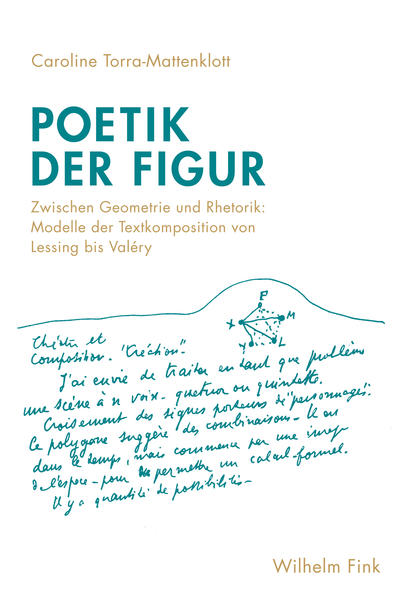 Caroline Torra-Mattenklott
POETIK
DER FIGUR
Zwischen Geometrie und Rhetorik:
Modelle der Textkomposition von
Lessing bis Valéry
P
X M
N L
Théâtre et
Composition. "Création".
J'ai envie de traiter en tant que problème
une scène à n voix - quatuor ou quintette.
Croisement des signes porteurs de "personnages".
Ce polygone suggère des combinaisons - Il
dans le temps, mais commence par une
de l'espace - pour permettre un calcul formel.
Il y a quantité de possibilités -
Wilhelm Fink